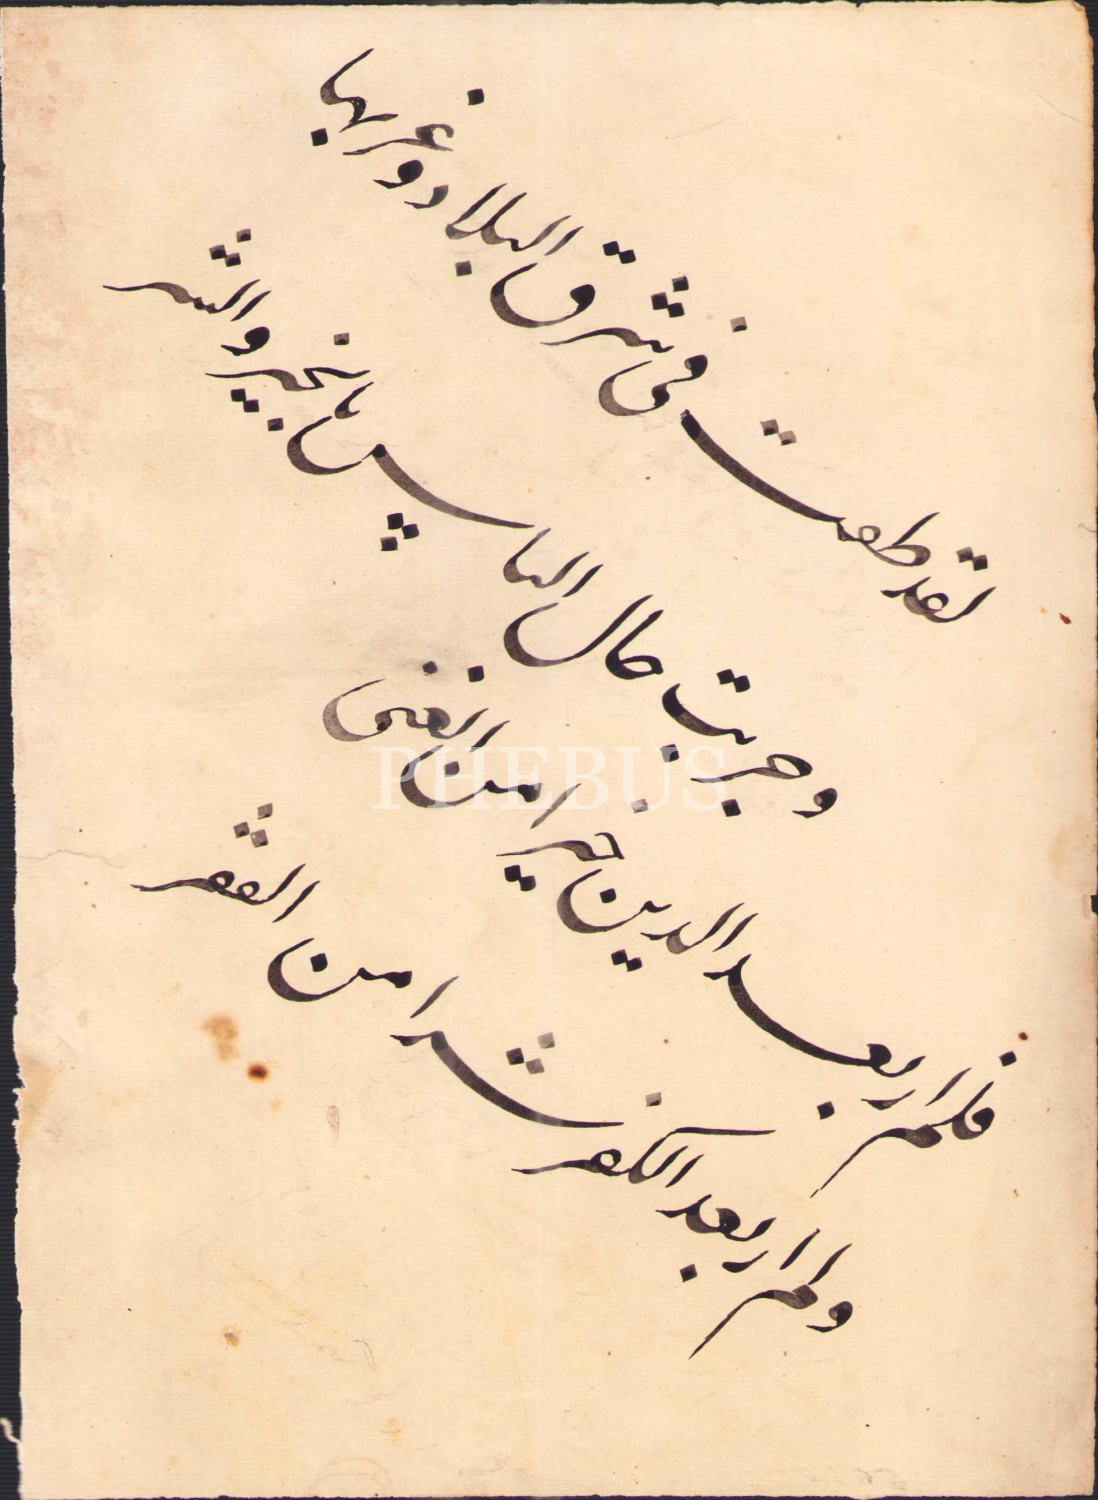 لقد طفت فى شرق البلاد وغربها
وجربت حال الناس بالخير والشر
فلم ار بعد الدين خيرا من الغنى
ولم ار بعد الكفر شرا من الفقر
PHEBUS